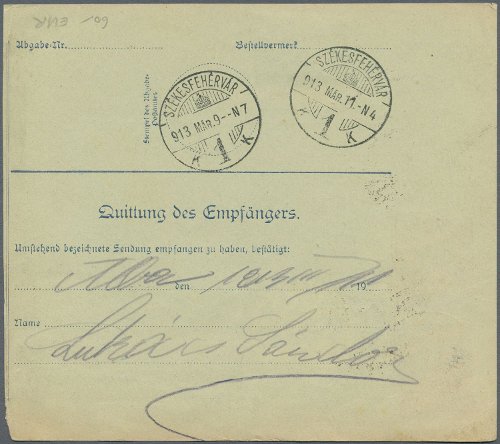 60,- EUR
Abgabe-Nr.
Bestellvermerk
Stempel des Abgabe-
Postamtes
SZÉKESFEHÉRVÁR
913 MÁR.9.-N7
K 1 K
SZÉKESFEHÉRVÁR
913 MÁR.11.-N4
1 K
Quittung des Empfängers.
Umstehend bezeichnete Sendung empfangen zu haben, bestätigt:
den 19
Name
Lukács Sándor